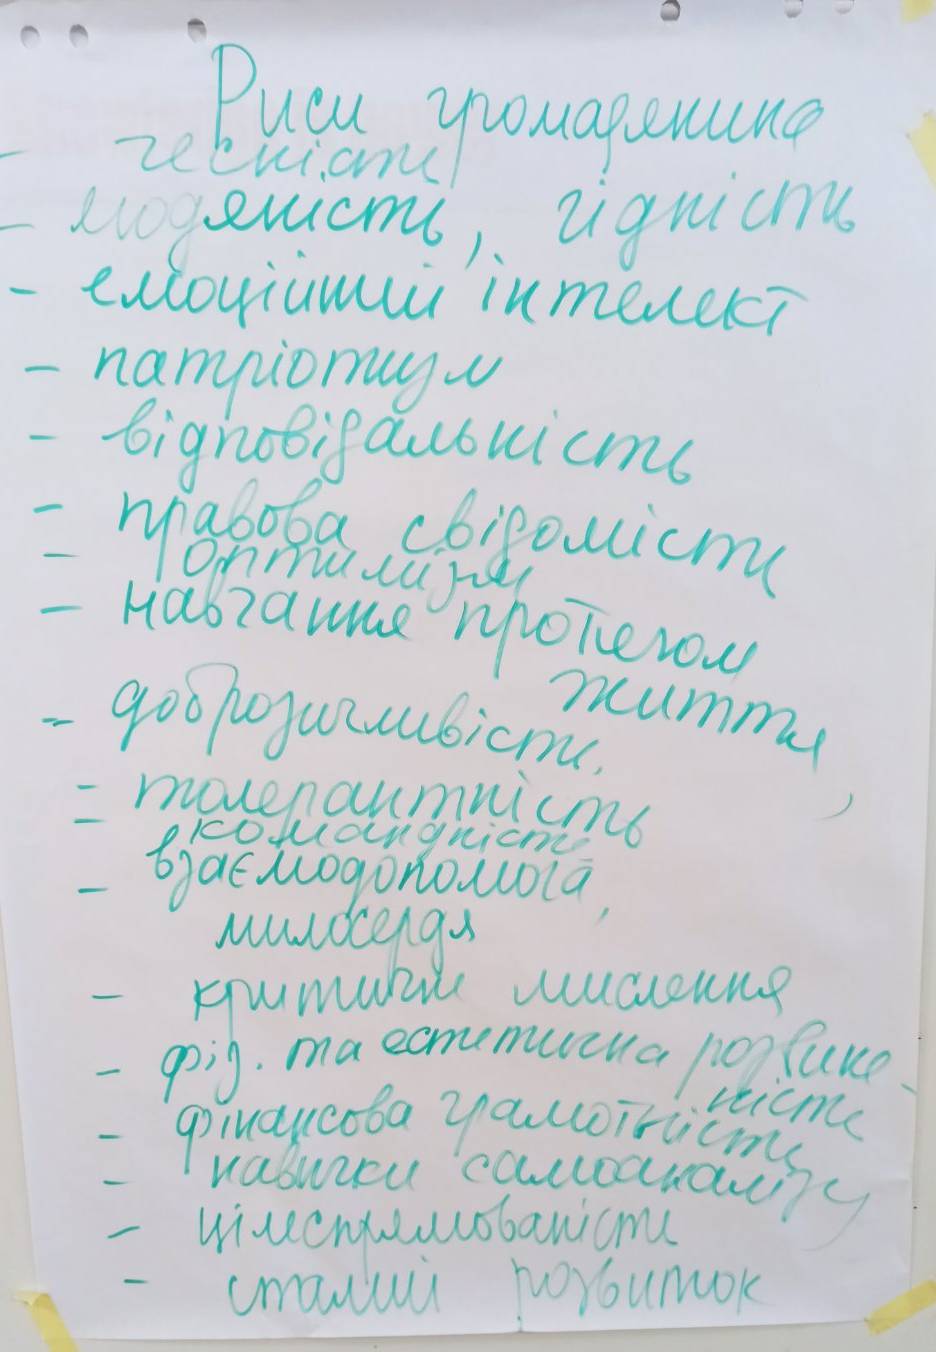 Риси громадянина
- чесність
- людяність, гідність
- емоційний інтелект
- патріотизм
- відповідальність
- правова свідомість
- оптимізм
- навчання протягом
життя
- доброзичливість,
- толерантність
- командність
- взаємодопомога,
милосердя
- критичне мислення
- фіз. та естетична розвине-
ність
- фінансова грамотність
- навички самоаналізу
- цілеспрямованість
- сталий розвиток